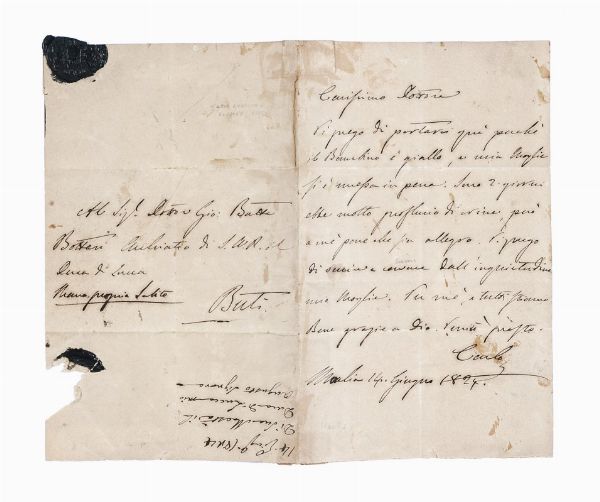 Carissimo Dottore
Vi prego di portarvi quì perchè
il Bambino è giallo, e mia Moglie
si è messa in pena. Sono 2. giorni
ebbe molto profluvio di orine, però
a me pare che sia allegro. Vi prego
di venire a cavare dall'inquietudine
mia Moglie. Per me, e tutti stanno
Bene grazie a Dio. Venite presto.
Carlo
Marlia 14. Giugno 1824.
Al Sig.r Dottor Gio: Batta
Bottari Archiatro di S.A.R. il
Duca di Lucca
Mano propria Subito
Buti
14. Giug.o 1824
Di Sua Maestà il
Duca di Lucca mio
Augusto Signore